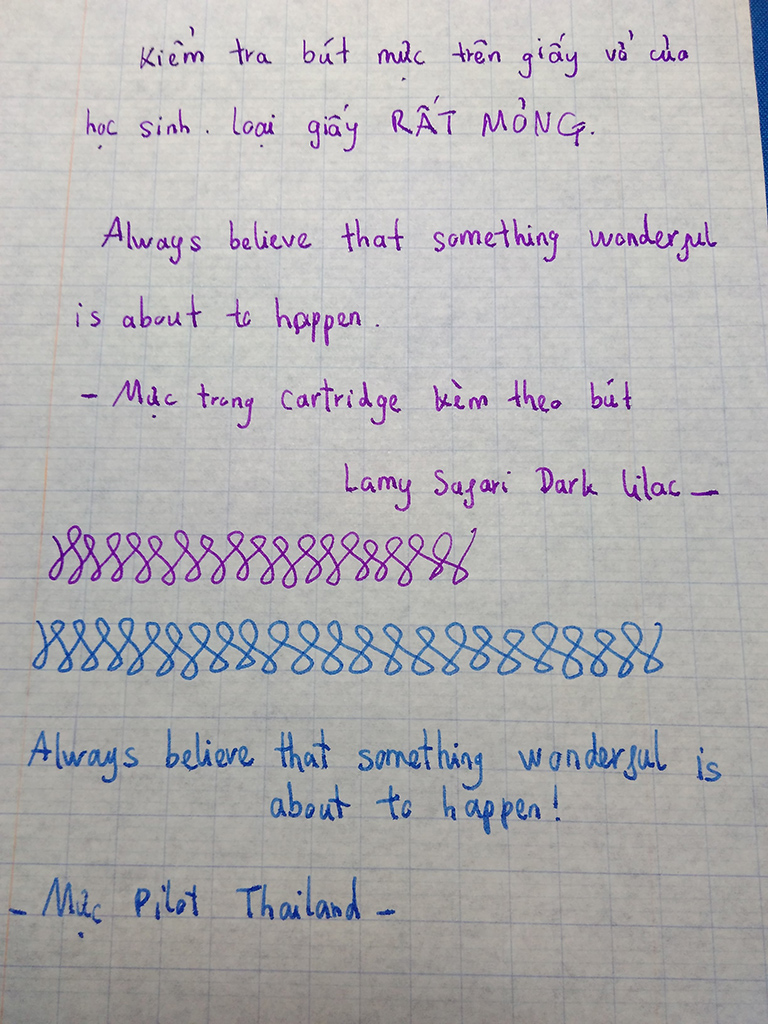 Kiểm tra bút mực trên giấy vở của
học sinh. Loại giấy RẤT MỎNG.
Always believe that something wonderful
is about to happen.
- Mực trong cartridge kèm theo bút
Lamy Safari Dark lilac -
Always believe that something wonderful is
about to happen!
- Mực Pilot Thailand -